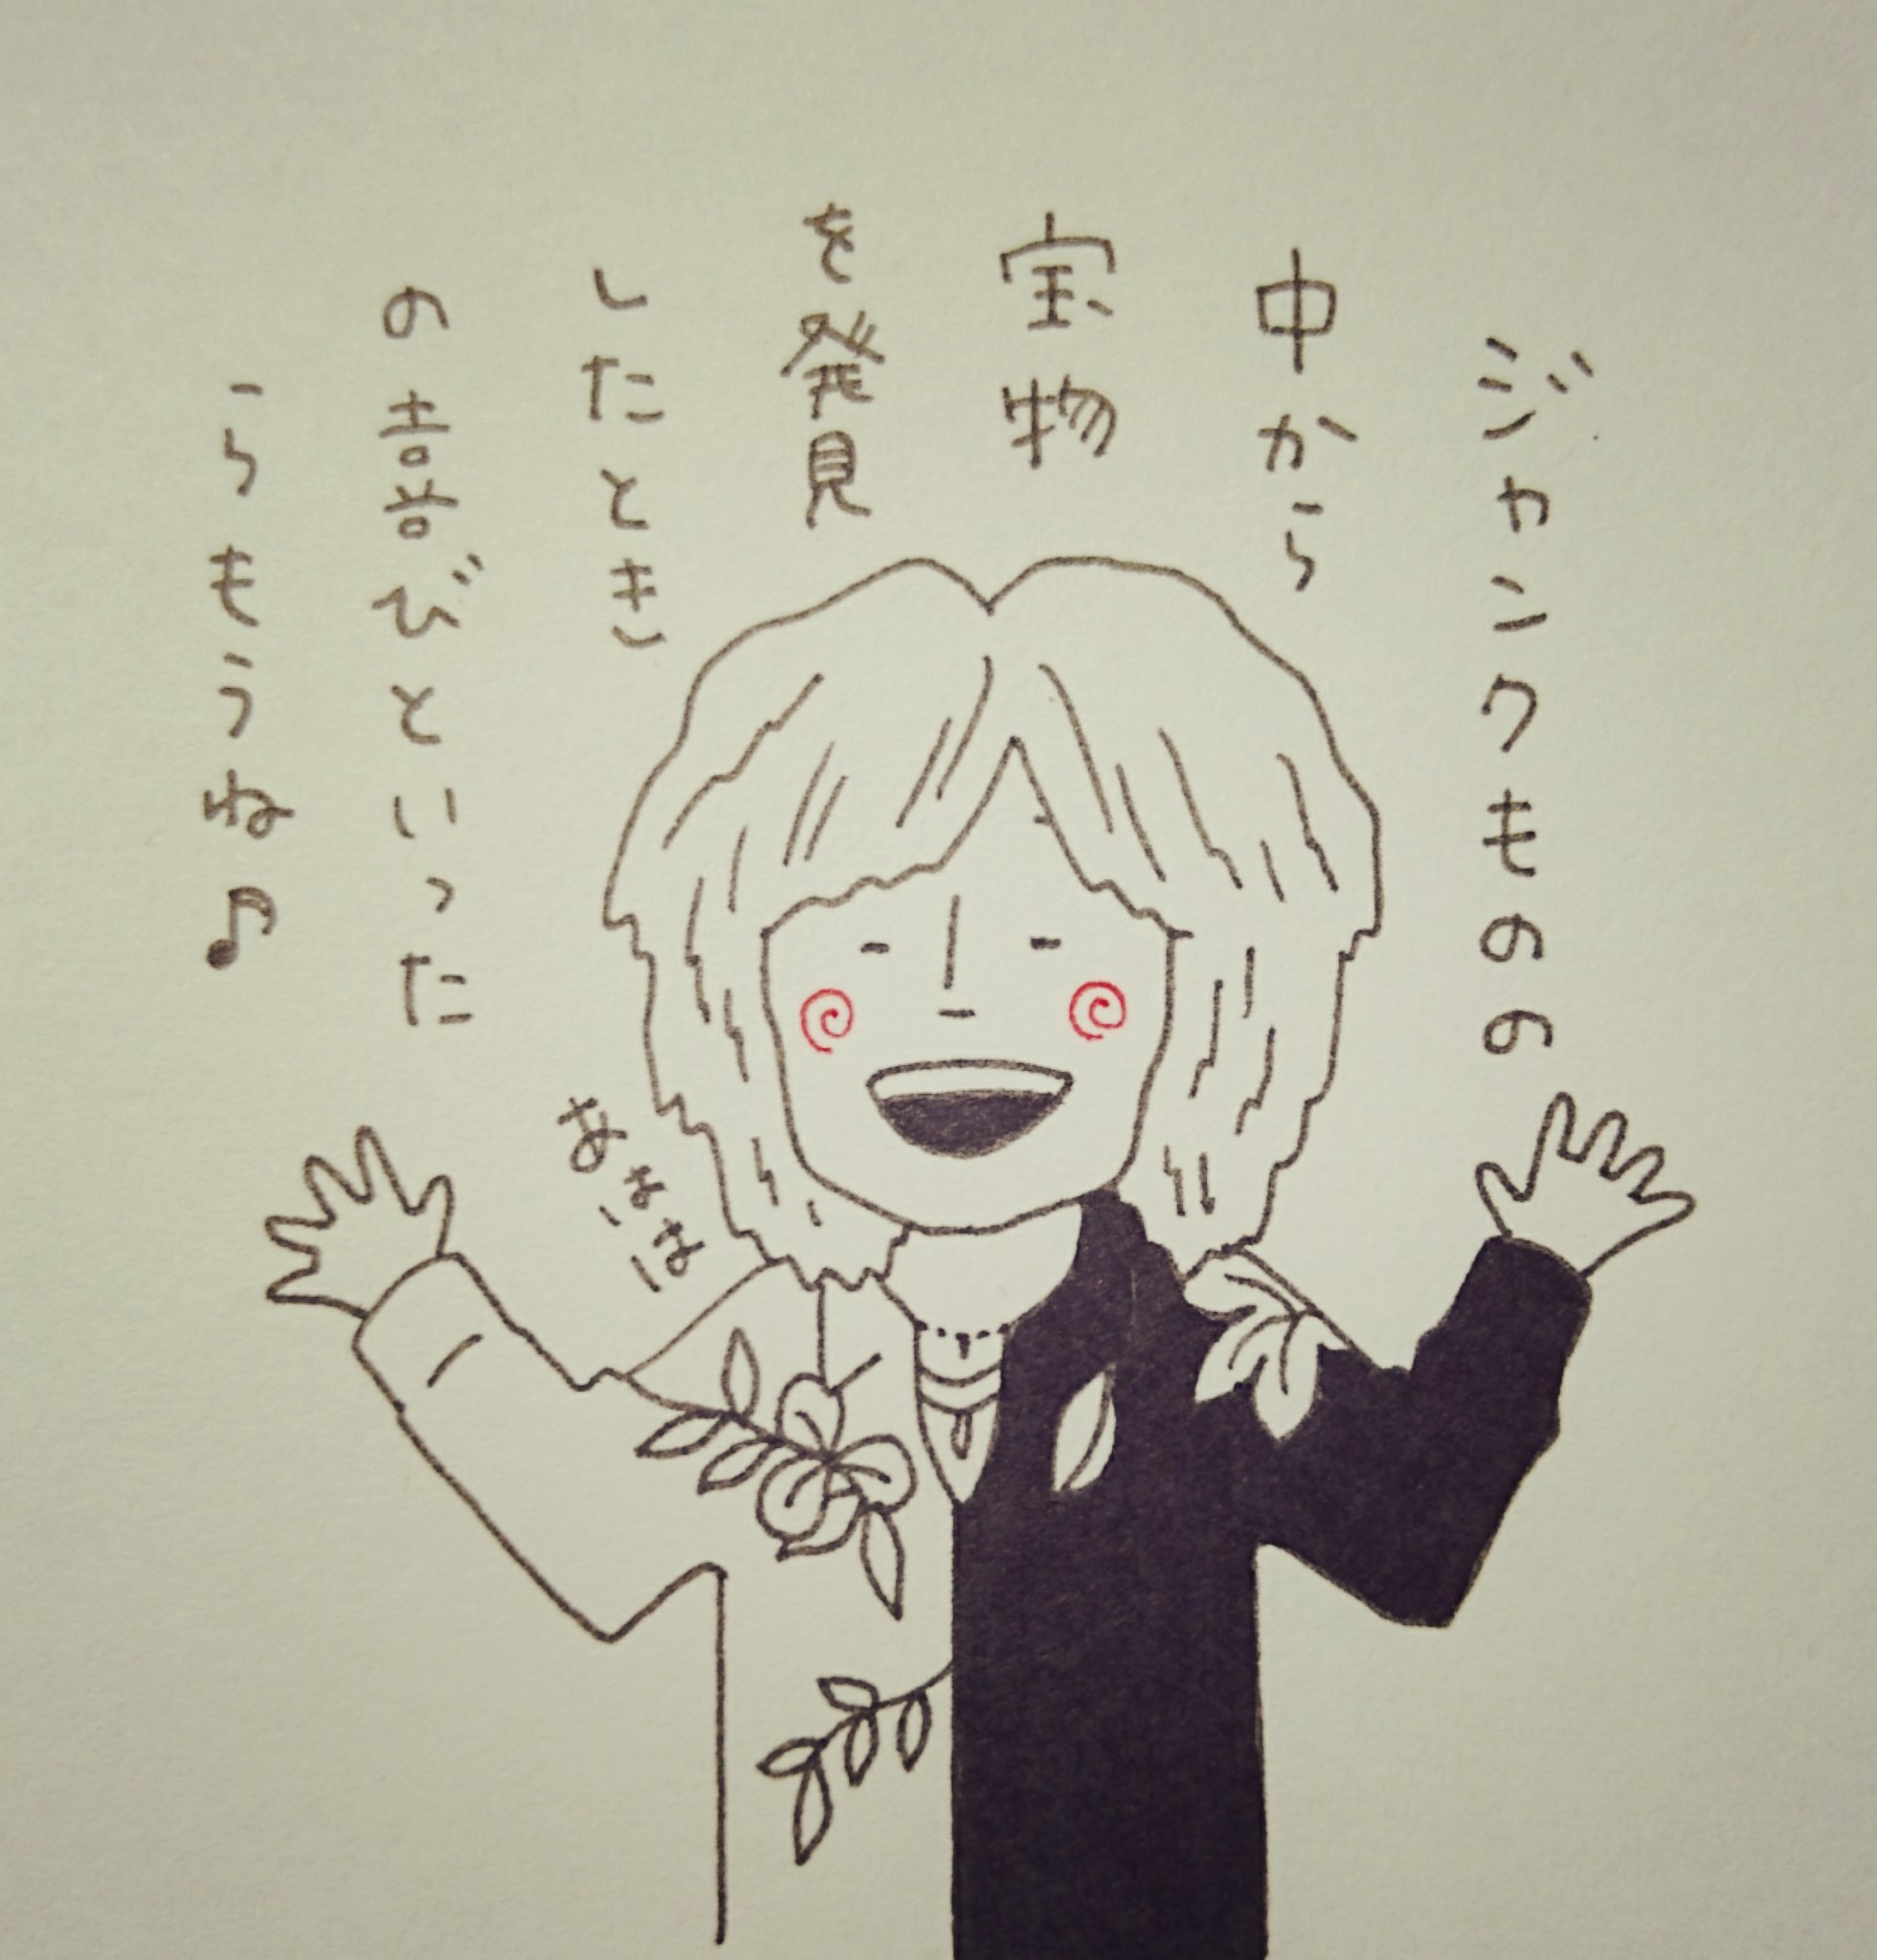 ジャンクものの
中から
宝物
を発見
したとき
の喜びといった
らもうね♪
あはは